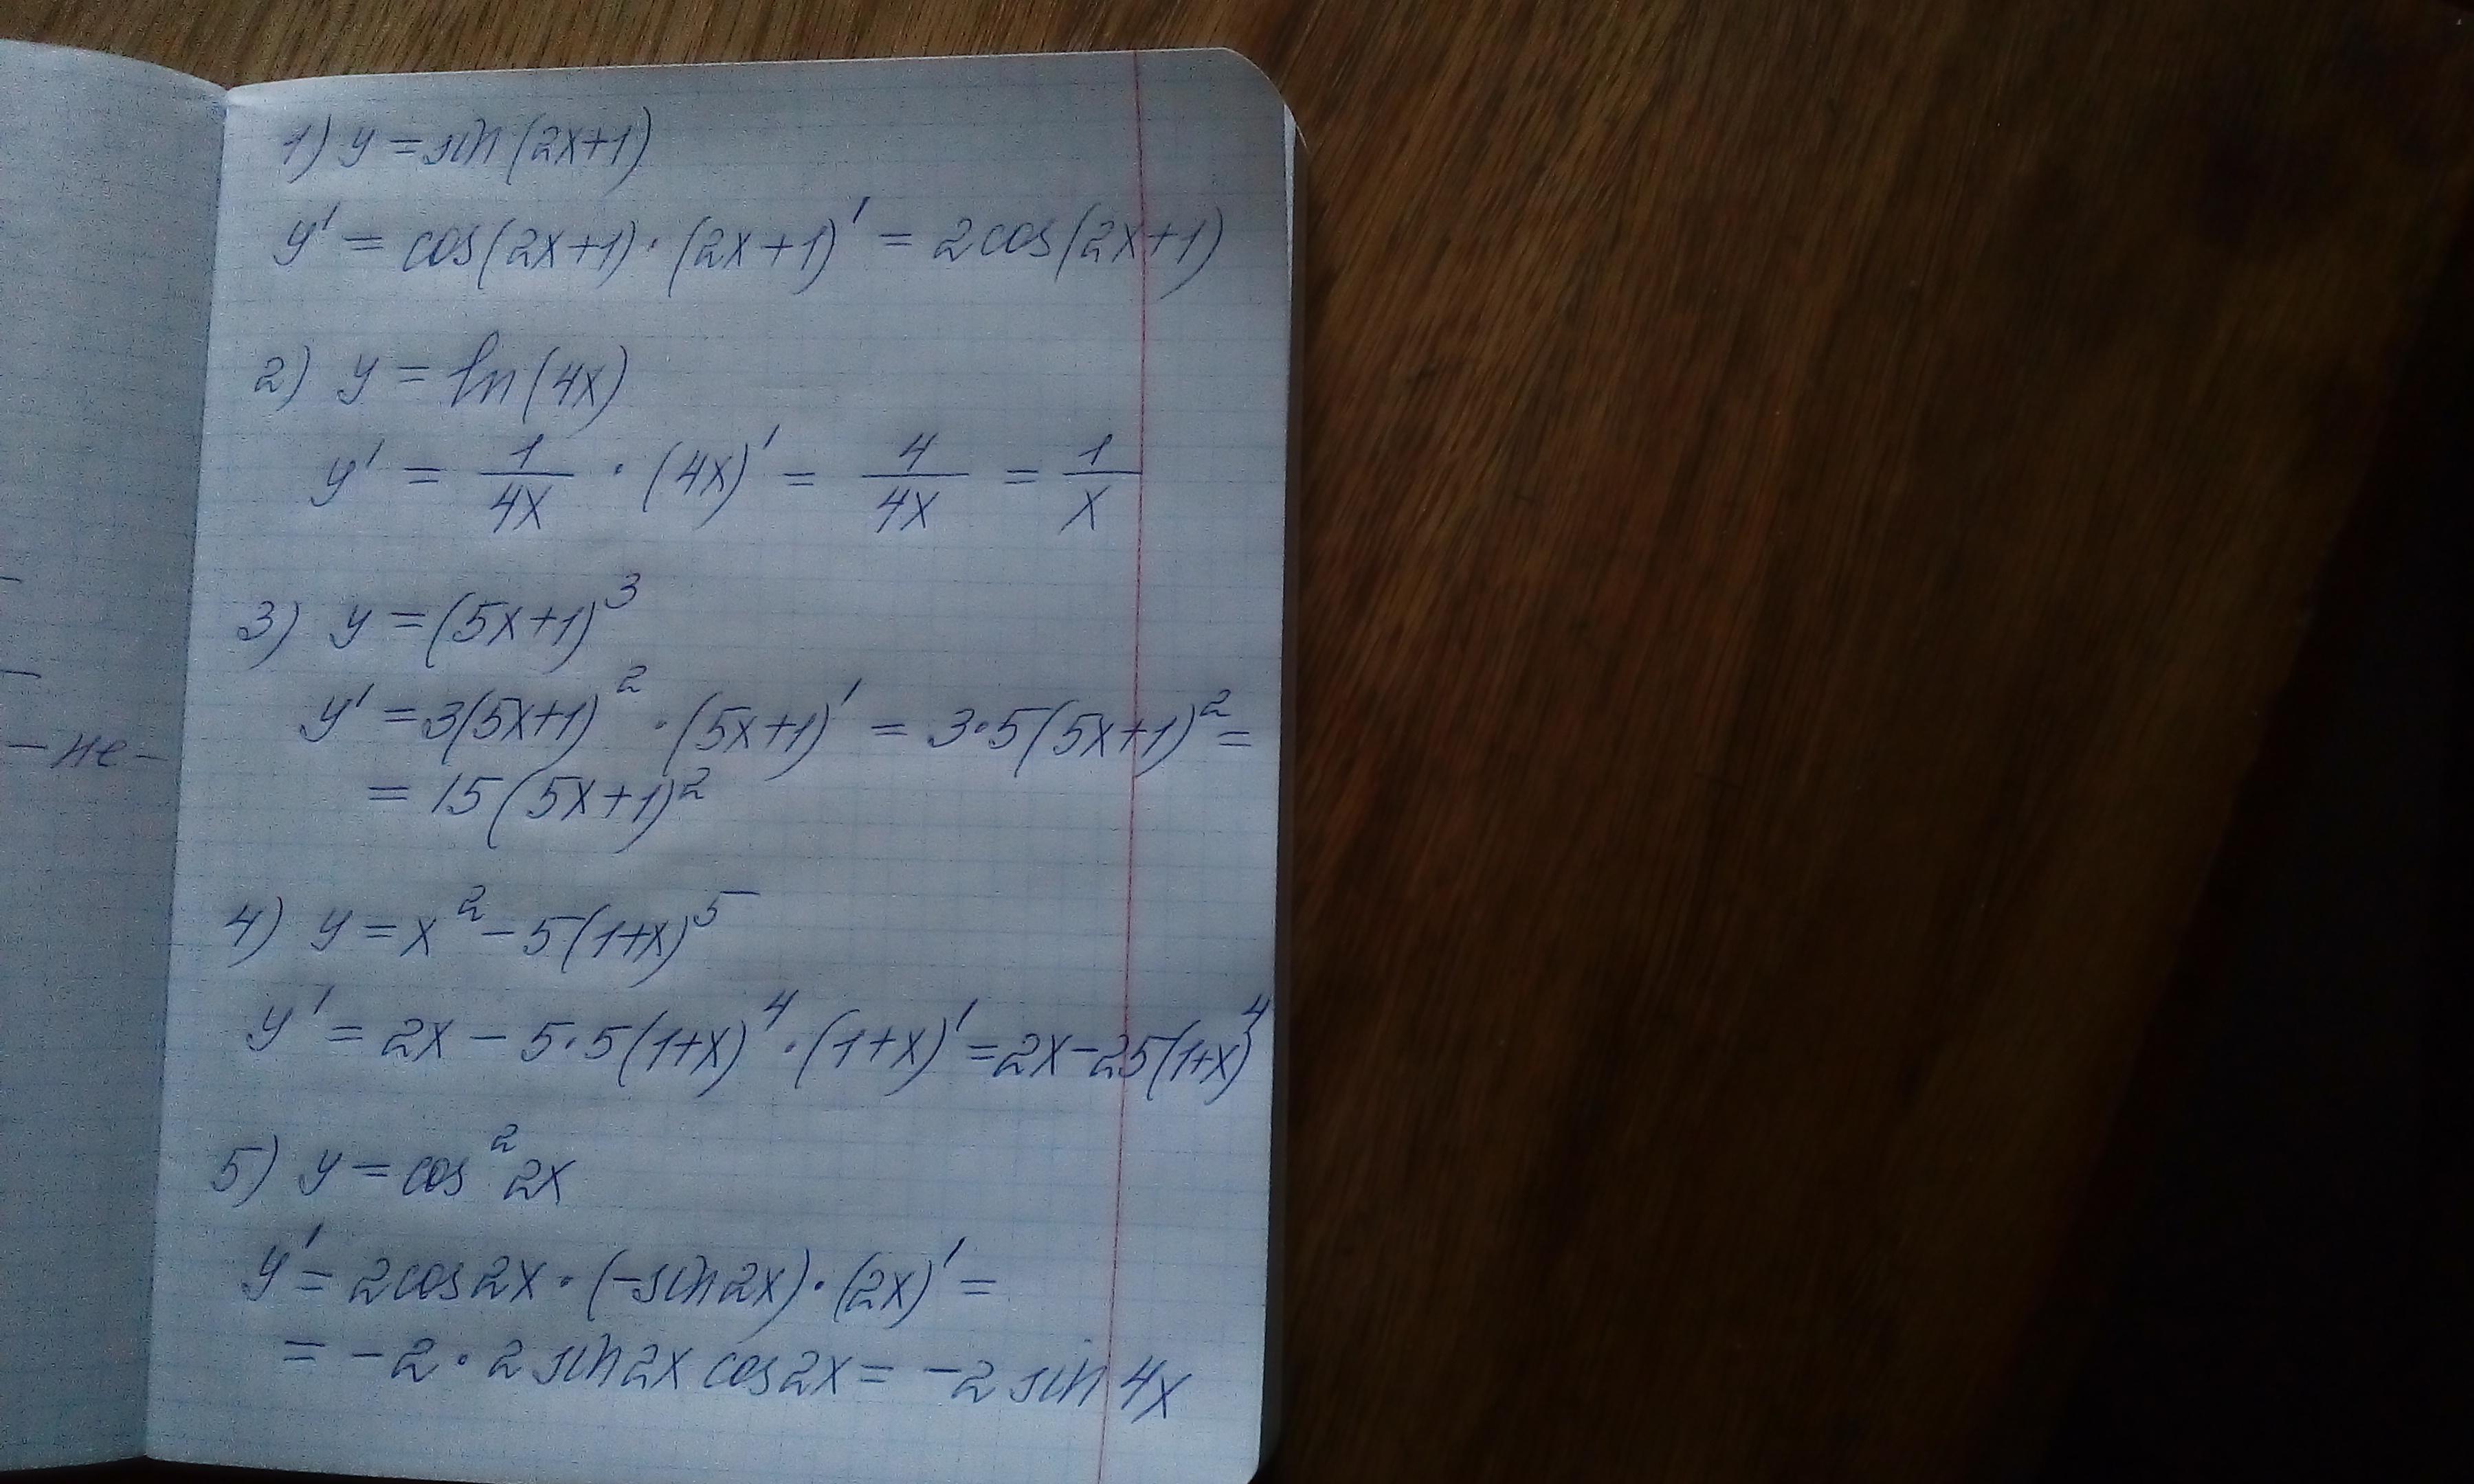 1) y = sin(2x+1)
y' = cos(2x+1)·(2x+1)' = 2cos(2x+1)
2) y = ln(4x)
y' = 1/4x · (4x)' = 4/4x = 1/x
3) y = (5x+1)^3
y' = 3(5x+1)^2 ·(5x+1)' = 3·5(5x+1)^2 =
= 15(5x+1)^2
4) y = x^2 - 5(1+x)^5
y' = 2x - 5·5(1+x)^4 ·(1+x)' = 2x - 25(1+x)^4
5) y = cos^2 2x
y' = 2cos2x·(-sin2x)·(2x)' =
= -2·2sin2x cos2x = -2sin4x
- не -